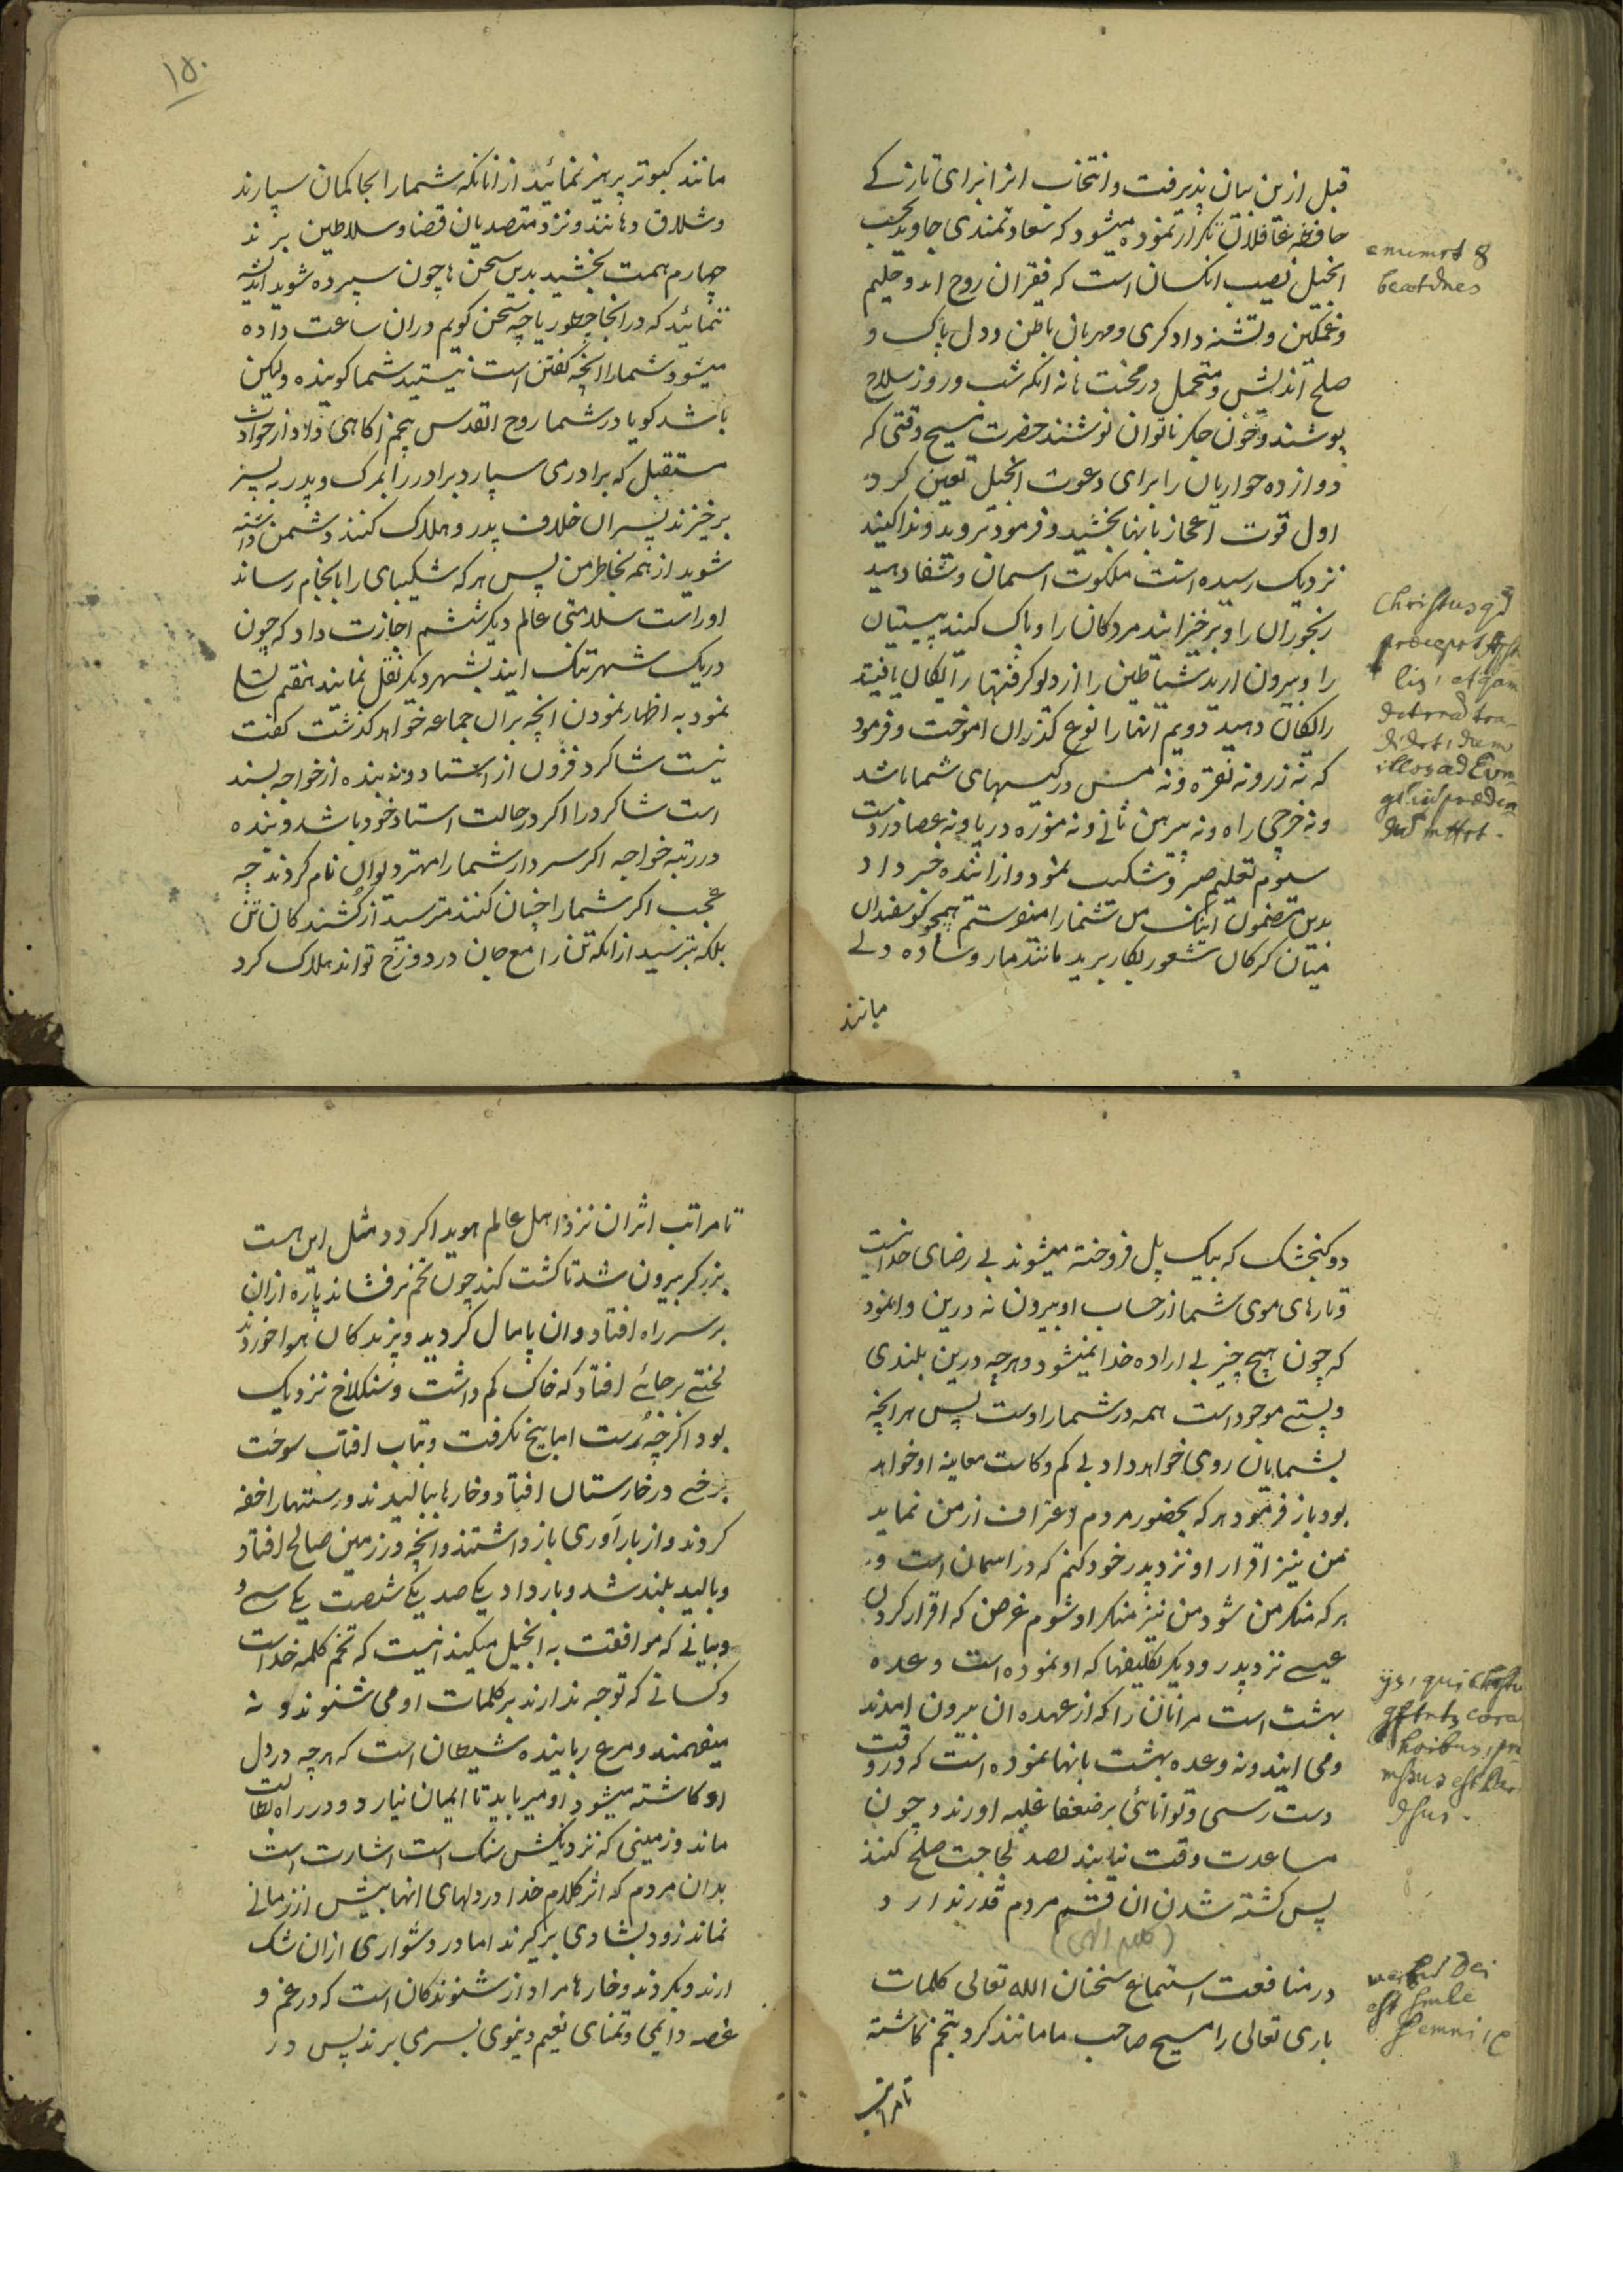 قبل ازین بیان پذیرفت و انتخاب انرا برای تازگے
حافظه غافلان تکرار نموده میشود که سعادتمندی جاوید بحسب
انجیل نصیب انکسان است که فقیران روح اند و حلیم
و غمکین و تشنه دادکری و مهربانی باطن و دل پاک و
صلح اندیش و متحمل در محنت ها نه انکه شب و روز سلاح
پوشند و خون جکر ناتوان نوشند حضرت مسیح وقتی که
دوازده حواریان را برای دعوت انجیل تعین کرد
اول قوت اعجاز بانها بخشید و فرمود بروید و ندا کنید
نزدیک رسیده است ملکوت اسمان و شفا دهید
رنجوران را و برخیزانید مردکان را و پاک کنید پیستیان
را و بیرون ارید شیاطین را از دلو کرفتها رایکان یافتید
رایکان دهید دویم انها را نوع کذران اموخت و فرمود
که نه زر و نه نقره و نه مس در کیسهای شما باشد
و نه خرجی راه و نه پیرهن ثانی و نه موزه در پا و نه عصا در دست
سوم تعلیم صبر و شکیب نمود و از اینده خبر داد
بدین مضمون اینک من شما را میفرستم همچو کوسفندان
میان کرکان شعور بکار برید مانند مار و ساده دلے
مانند
emumrt 8
beatdnes
Christus qd
procepit Apst
lis, et qam
illos ad Evn
۱۵۰
مانند کبوتر پرهیز نمائید از انانکه شما را بحاکمان سپارند
و شلاق دهانند و نزد متصدیان قضا و سلاطین برند
چهارم همت بخشید بدین سخن ها چون سپرده شوید اندیشه
ننمائید که در انجا چطور یا چه سخن کویم دران ساعت داده
میشود شما را انچه کفتن است نیستید شما کوینده ولیکن
باشد کویا در شما روح القدس پنجم اکاهی داد از حوادث
مستقبل که برادر می سپارد برادر را بمرک و پدر به پسر
برخیزند پسران خلاف پدر و هلاک کنند دشمن داشته
شوید از همه بخاطر من پس هر که شکیبای را بانجام رساند
اوراست سلامتی عالم دیکر ششم اجازت داد که چون
در یک شهر تنک ایند بشهر دیکر نقل نمایند هفتم تسلی
نمود به اظهار نمودن انچه بران جماعه خواهد کذشت کفت
نیست شاکرد فزون از استاد و نه بنده از خواجه بسند
است شاکرد را اکر در حالت استاد خود باشد و بنده
در رتبه خواجه اکر سردار شما را مهتر دیوان نام کردند چه
عجب اکر شما را چنان کنند مترسید از کشندکان تن
بلکه بترسید از انکه تن را مع جان در دوزخ تواند هلاک کرد
دو کنجشک که بیک پل فروخته میشوند بی رضای خدا نیست
و تارهای موی شما از حساب او بیرون نه درین وانمود
که چون هیچ چیز بی اراده خدا نمیشود و هرچه درین بلندی
و پستے موجود است همه در شمار اوست پس هر انچه
بشمایان روی خواهد داد بی کم و کاست معاینه او خواهد
بود باز فرمود هر که بحضور مردم اعتراف از من نماید
من نیز اقرار او نزد پدر خود کنم که در اسمان است و
هر که منکر من شود من نیز منکر او شوم غرض که اقرار کردن
عیسے نزد پدر و دیکر تکلیفها که او نموده است وعده
بهشت است مر انان را که از عهده ان بیرون امدند
و می ایند و نه وعده بهشت بانها نموده است که در وقت
دست رسی و توانائی بر ضعفا غلبه اورند و چون
مساعدت وقت نیابند بصد لجاجت صلح کنند
پس کشته شدن ان قسم مردم قدر ندارد
(کلام الهی)
در منافعت استماع سخنان الله تعالی کلمات
باری تعالی را مسیح صاحب ما مانند کرد بتخم کاشته
تا مراتب
ijs, qui
hoibus, pro
mssus est Par
dsus.
verbud Dei
est simle
semni,
تا مراتب اثر ان نزد اهل عالم هویدا کردد مثل این است
بزرکر بیرون شد تا کشت کند چون تخم برفشاند پاره ازان
بر سر راه افتاد و ان پامال کردید و پرندکان هوا خوردند
لختے بر جائے افتاد که خاک کم داشت و سنکلاخ نزدیک
بود اکرچه رست اما بیخ نکرفت و بتاب افتاب سوخت
برخے در خارستان افتاد و خارها ببالیدند و رستنها را خفه
کردند و از باراوری باز داشتند و انچه در زمین صالح افتاد
و بالید بلند شد و بار داد یکے صد یکے شصت یکے سے و
و بیانے که موافقت به انجیل میکند انیست که تخم کلمه خداست
و کسانے که توجه ندارند بر کلمات او می شنوند و نه
میفهمند و مرغ رباینده شیطان است که هرچه در دل
او کاشته میشود او میرباید تا ایمان نیارد و در راه بطالت
ماند و زمینی که نزدیکش سنک است اشارت است
بدان مردم که اثر کلام خدا در دلهای انها بیش از زمانے
نماند زود بشادی برکیرند اما در دشواری ازان شک
ارند و بکردند و خارها مراد از شنوندکان است که در غم و
غصه دائمی و تمنای نعیم دنیوی بسر می برند پس در